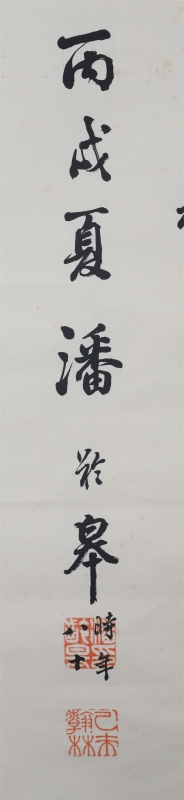 丙戌夏潘齡皋
時年
八十
乙未
翰林